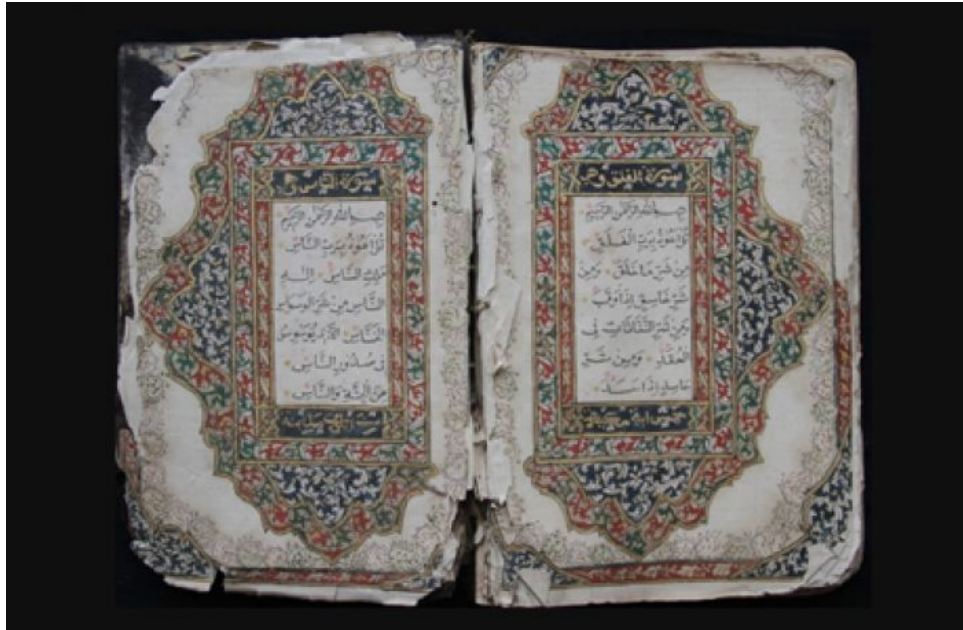 سورة الفلق وهي
بِسْمِ اللهِ الرَّحْمٰنِ الرَّحِيْمِ
قُلْ اَعُوْذُ بِرَبِّ الْفَلَقِ
مِنْ شَرِّ مَا خَلَقَ وَمِنْ
شَرِّ غَاسِقٍ اِذَا وَقَبَ
وَمِنْ شَرِّ النَّفَّاثَاتِ فِي
الْعُقَدِ وَمِنْ شَرِّ
حَاسِدٍ اِذَا حَسَدَ
خمس اية
سورة الناس
بِسْمِ اللهِ الرَّحْمٰنِ الرَّحِيْمِ
قُلْ اَعُوْذُ بِرَبِّ النَّاسِ
مَلِكِ النَّاسِ اِلٰهِ
النَّاسِ مِنْ شَرِّ الْوَسْوَاسِ
الْخَنَّاسِ الَّذِي يُوَسْوِسُ
فِي صُدُوْرِ النَّاسِ
مِنَ الْجِنَّةِ وَالنَّاسِ